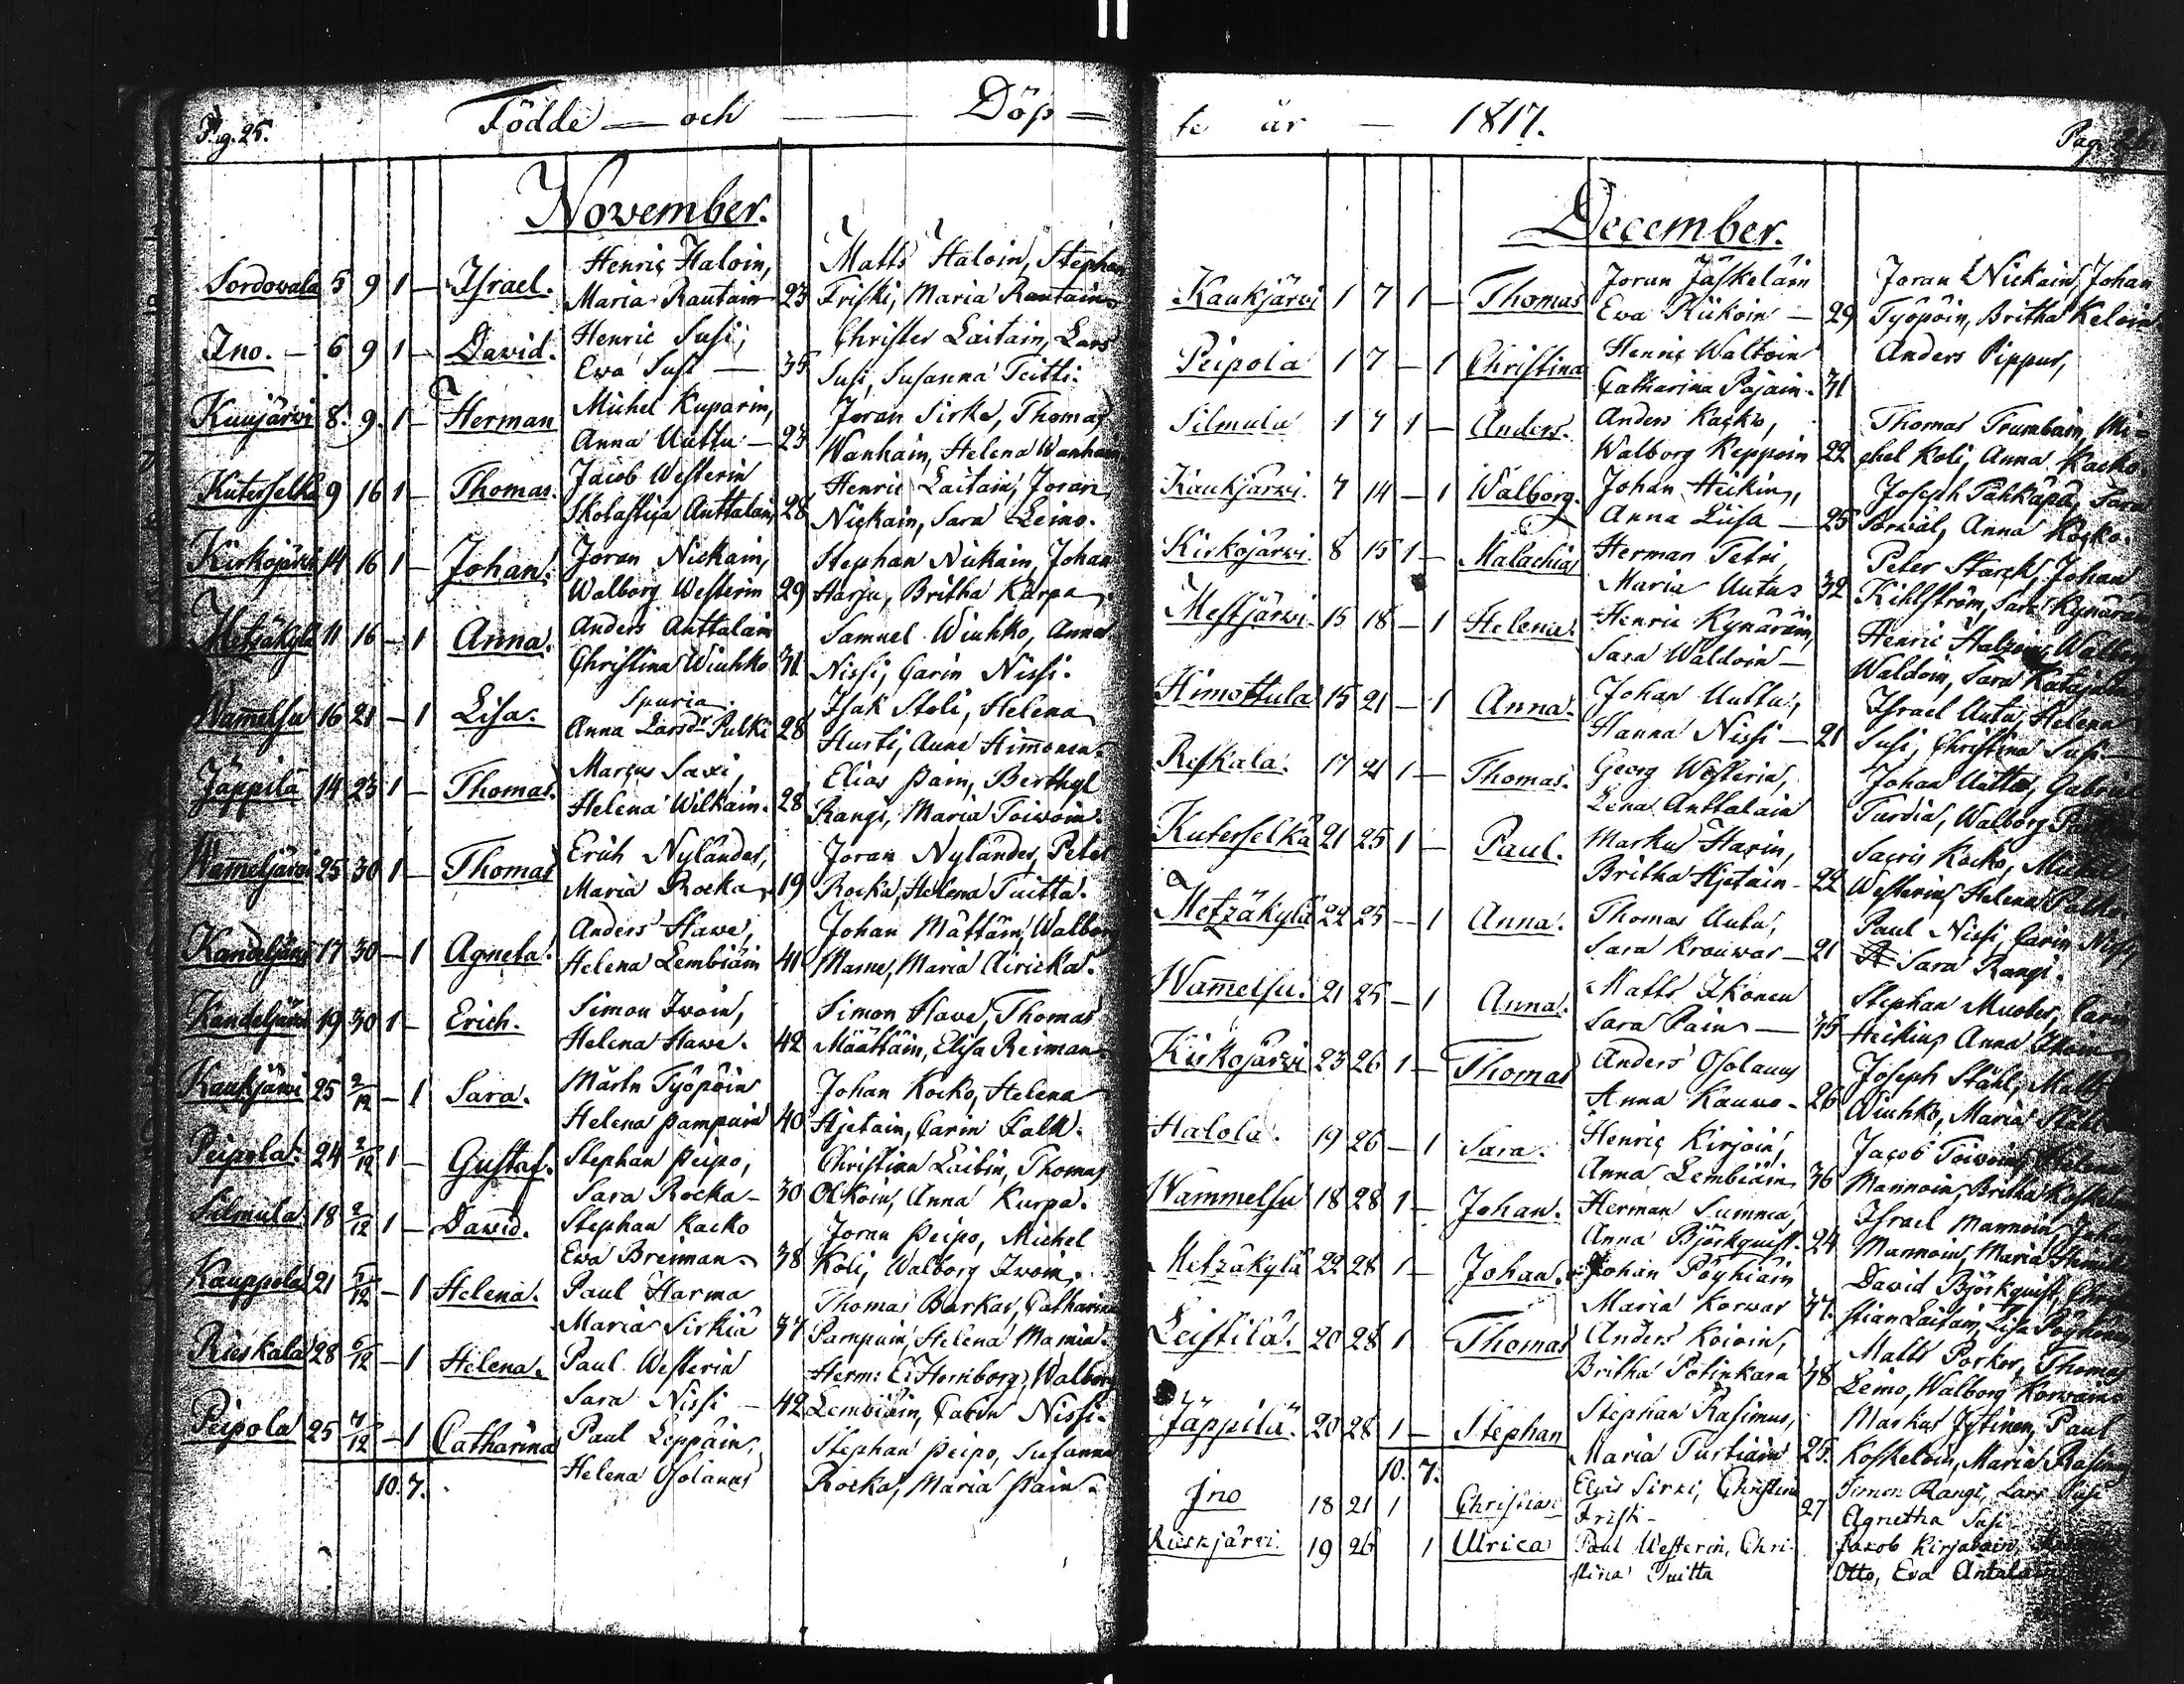 Pag. 25.
Födde — och — Döp =
November.
Henric Haloin, Matts Haloin, Stephan
Sordovala 5 9 1 — Israel. Maria Rautain 23 Friski, Maria Rautain
Henric Susi, Christer Laitain, Lars
Ino. — 6 9 1 — David. Ewa Susi — 35 Susi, Susanna Teitti.
Michel Kuparin, Joran Sirke, Thomas
Kuujärvi 8. 9. 1 — Herman Anna Uuttu — 23 Wanhain, Helena Wanhain
Jacob Westerin Henric Laitain, Joran
Kuterselkä 9 16 1 — Thomas. Skolastica Anttalain 28 Nickain, Sara Leino.
Joran Nickain, Stephan Nickain, Johan
Kirkojärvi 14 16 1 — Johan. Walborg Westerin 29 Harju, Britha Kurpa
Anders Anttalain Samuel Wiuhko, Anna
Metzäkylä 11 16 — 1 Anna. Christina Wiuhko 31 Nissi, Carin Nissi.
Spuria. Isak Stoli, Helena
Wamelsu 16 21 — 1 Lisa. Anna Larsdr Pulki 28 Hurti, Aune Himonen.
Marcus Saxi, Elias Pain, Berthel
Jäppilä 14 23 1 — Thomas. Helena Wilkain. 28 Rangi, Maria Toiwoin.
Erich Nylander, Joran Nylander, Peter
Wameljärvi 25 30 1 — Thomas Maria Rocka 19 Rocka, Helena Tuitta.
Anders Hawe, Johan Mättäin, Walborg
Kandeljärvi 17 30 — 1 Agneta. Helena Lembiäin 41 Mame, Maria Airicka.
Simon Iwoin, Simon Hawe, Thomas
Kandeljärvi 19 30 1 — Erich. Helena Hawe. 42 Määttäin, Elisa Reiman
Mårtn Työpöin Johan Kocko, Helena
Kaukjärvi 25 2/12 — 1 Sara. Helena Pampuin 40 Hjetain, Carin Falk.
Stephan Peipo, Christian Laitin, Thomas
Peipola. 24 2/12 1 — Gustaf. Sara Rocka — 30 Olkoin, Anna Kurpa.
Stephan Kacko Joran Peipo, Michel
Silmula 18 2/12 1 — Dawid. Ewa Breiman 38 Koli, Walborg Iwoin.
Paul Harma Thomas Barkar, Catharina
Kauppola 21 5/12 — 1 Helena. Maria Sirkiä 37 Pampuin, Helena Mamia.
Paul Westerin Herm: E: Hornborg, Walborg
Rieskala 28 6/12 — 1 Helena. Sara Nissi — 42 Lembiäin, Carin Nissi.
Paul Leppäin, Stephan Peipo, Susanna
Peipola 25 7/12 — 1 Catharina Helena Osolanus Rocka, Maria Pain.
10. 7.
te år — 1817.
Pag.
December.
Joran Jäskeläin Joran Nickain, Johan
Kaukjärvi 1 7 1 — Thomas Ewa Riikoin — 29 Työpöin, Britha Keloin
Henric Waltoin Anders Pippur,
Peipola 1 7 — 1 Christina Catharina Pajain. 31
Anders Kacko, Thomas Trumbain, Mi-
Silmula 1 7 1 — Anders. Walborg Reppoin 22 chel Koli, Anna Kacko.
Johan Heikin, Joseph Pahkapä, Sara
Kaukjärvi. 7 14 — 1 Walborg. Anna Liisa — 25 Sorwal, Anna Kocko.
Herman Tetri, Peter Starck, Johan
Kirkojärvi. 8 15 1 — Malachias Maria Uutus 32 Kihlström, Sara Kynäräin
Henric Kynäräin, Henric Halzoin, Walborg
Mestjärvi. 15 18 — 1 Helena. Sara Waldoin — Waldoin, Sara
Johan Uuttu, Israel Uutu, Helena
Himottula 15 21 — 1 Anna. Hanna Nissi — 21 Susi, Christina Susi.
Georg Westerin, Johan Uuttu, Gabriel
Reskala. 17 21 1 — Thomas. Lena Anttalain Turdia, Walborg
Markus Harin, Sacris Kocko, Michel
Kuterselkä 21 25 1 — Paul. Britha Hjetain — 22 Westerin, Helena
Thomas Uutu, Paul Nissi, Carin Nissi,
Metzäkylä 22 25 — 1 Anna. Sara Krouwar — 21 Sara Rangi.
Matts Ikonen Stephan Muotor, Carin
Wamelsu. 21 25 — 1 Anna. Sara Pain — 35 Heikin, Anna Ikoin
Anders Osolanus Joseph Ståhl, Matts
Kirkojärvi 23 26 1 — Thomas Anna Kauwo — 26 Wiuhko, Maria Ståhl
Henric Kirjoin, Jacob Toiwoin, Helena
Halola. 19 26 — 1 Sara. Anna Lembiäin 36 Mannoin, Britha
Herman Summa, Israel Mannoin, Johan
Wammelsu 18 28 1 — Johan. Anna Björkquist. 24 Mannoin, Maria
Johan Pöyhiäin David Björkquist, Chris
Metzäkylä 22 28 1 — Johan. Maria Korwar 37. stian Laitain, Lisa
Anders Koioin, Matts Porkor, Thomas
Leistilä. 20 28 1 Thomas Britha Potinkara 38 Leino, Walborg Korwain
Stephan Rasimus, Markus Jytinen, Paul
Jäppilä. 20 28 1 — Stephan Maria Turtiain 25. Koskeloin, Maria
10. 7.
Elias Sirki, Christina Simon Rangi, Lars Susi
Ino 18 21 1 Christian Fristi — 27 Agnetha Susi
Rieskjärvi. 19 26 1 Ulrica Paul Westerin, Chri- Jakob Kirjavain,
stina Tuitta Otto, Eva